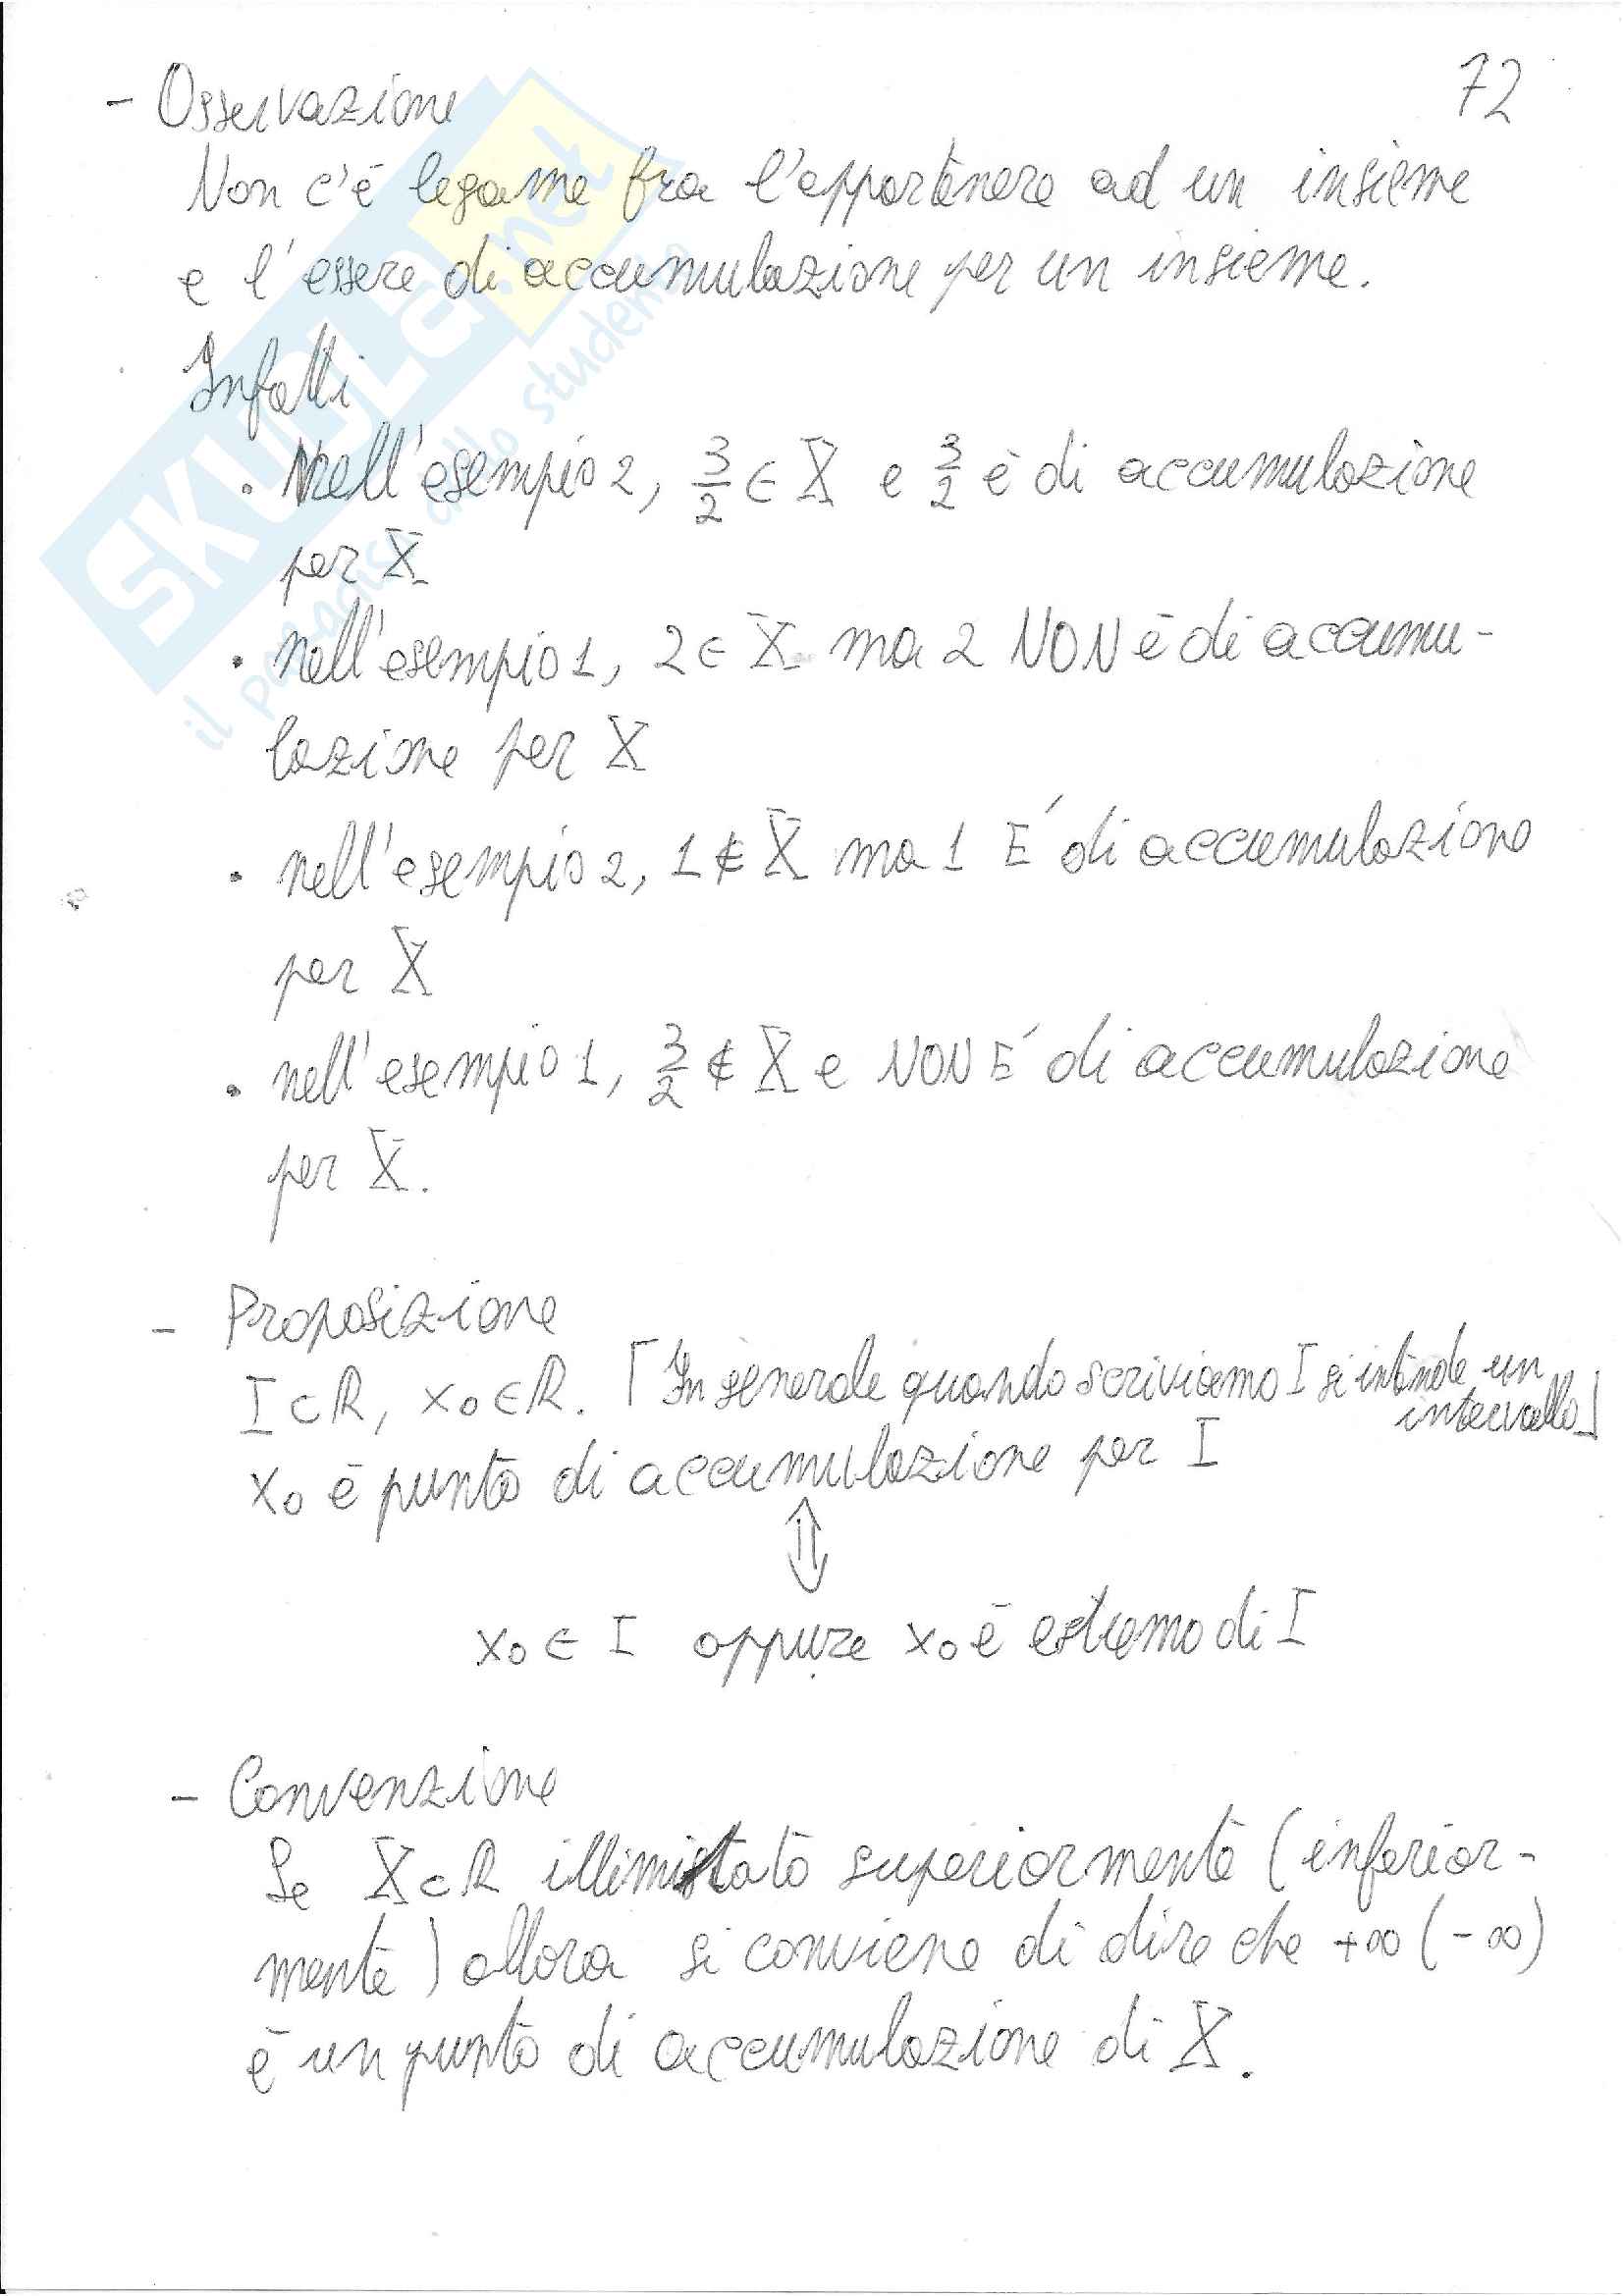 72
- Osservazione
Non c'è legame fra l'appartenere ad un insieme
e l'essere di accumulazione per un insieme.
Infatti
• Nell'esempio 2, 3/2 ∈ X e 3/2 è di accumulazione
per X
• nell'esempio 1, 2 ∈ X ma 2 NON è di accumu-
lazione per X
• nell'esempio 2, 1 ∉ X ma 1 E' di accumulazione
per X
• nell'esempio 1, 3/2 ∉ X e NON E' di accumulazione
per X.
- Proposizione
I ⊂ ℝ, x₀ ∈ ℝ. ⌈In generale quando scriviamo I si intende un
intervallo⌋
x₀ è punto di accumulazione per I
⇕
x₀ ∈ I oppure x₀ è estremo di I
- Convenzione
Se X ⊂ ℝ illimitato superiormente (inferior-
mente) allora si conviene di dire che +∞ (-∞)
è un punto di accumulazione di X.
SKUOLA.net
il paradiso dello studente